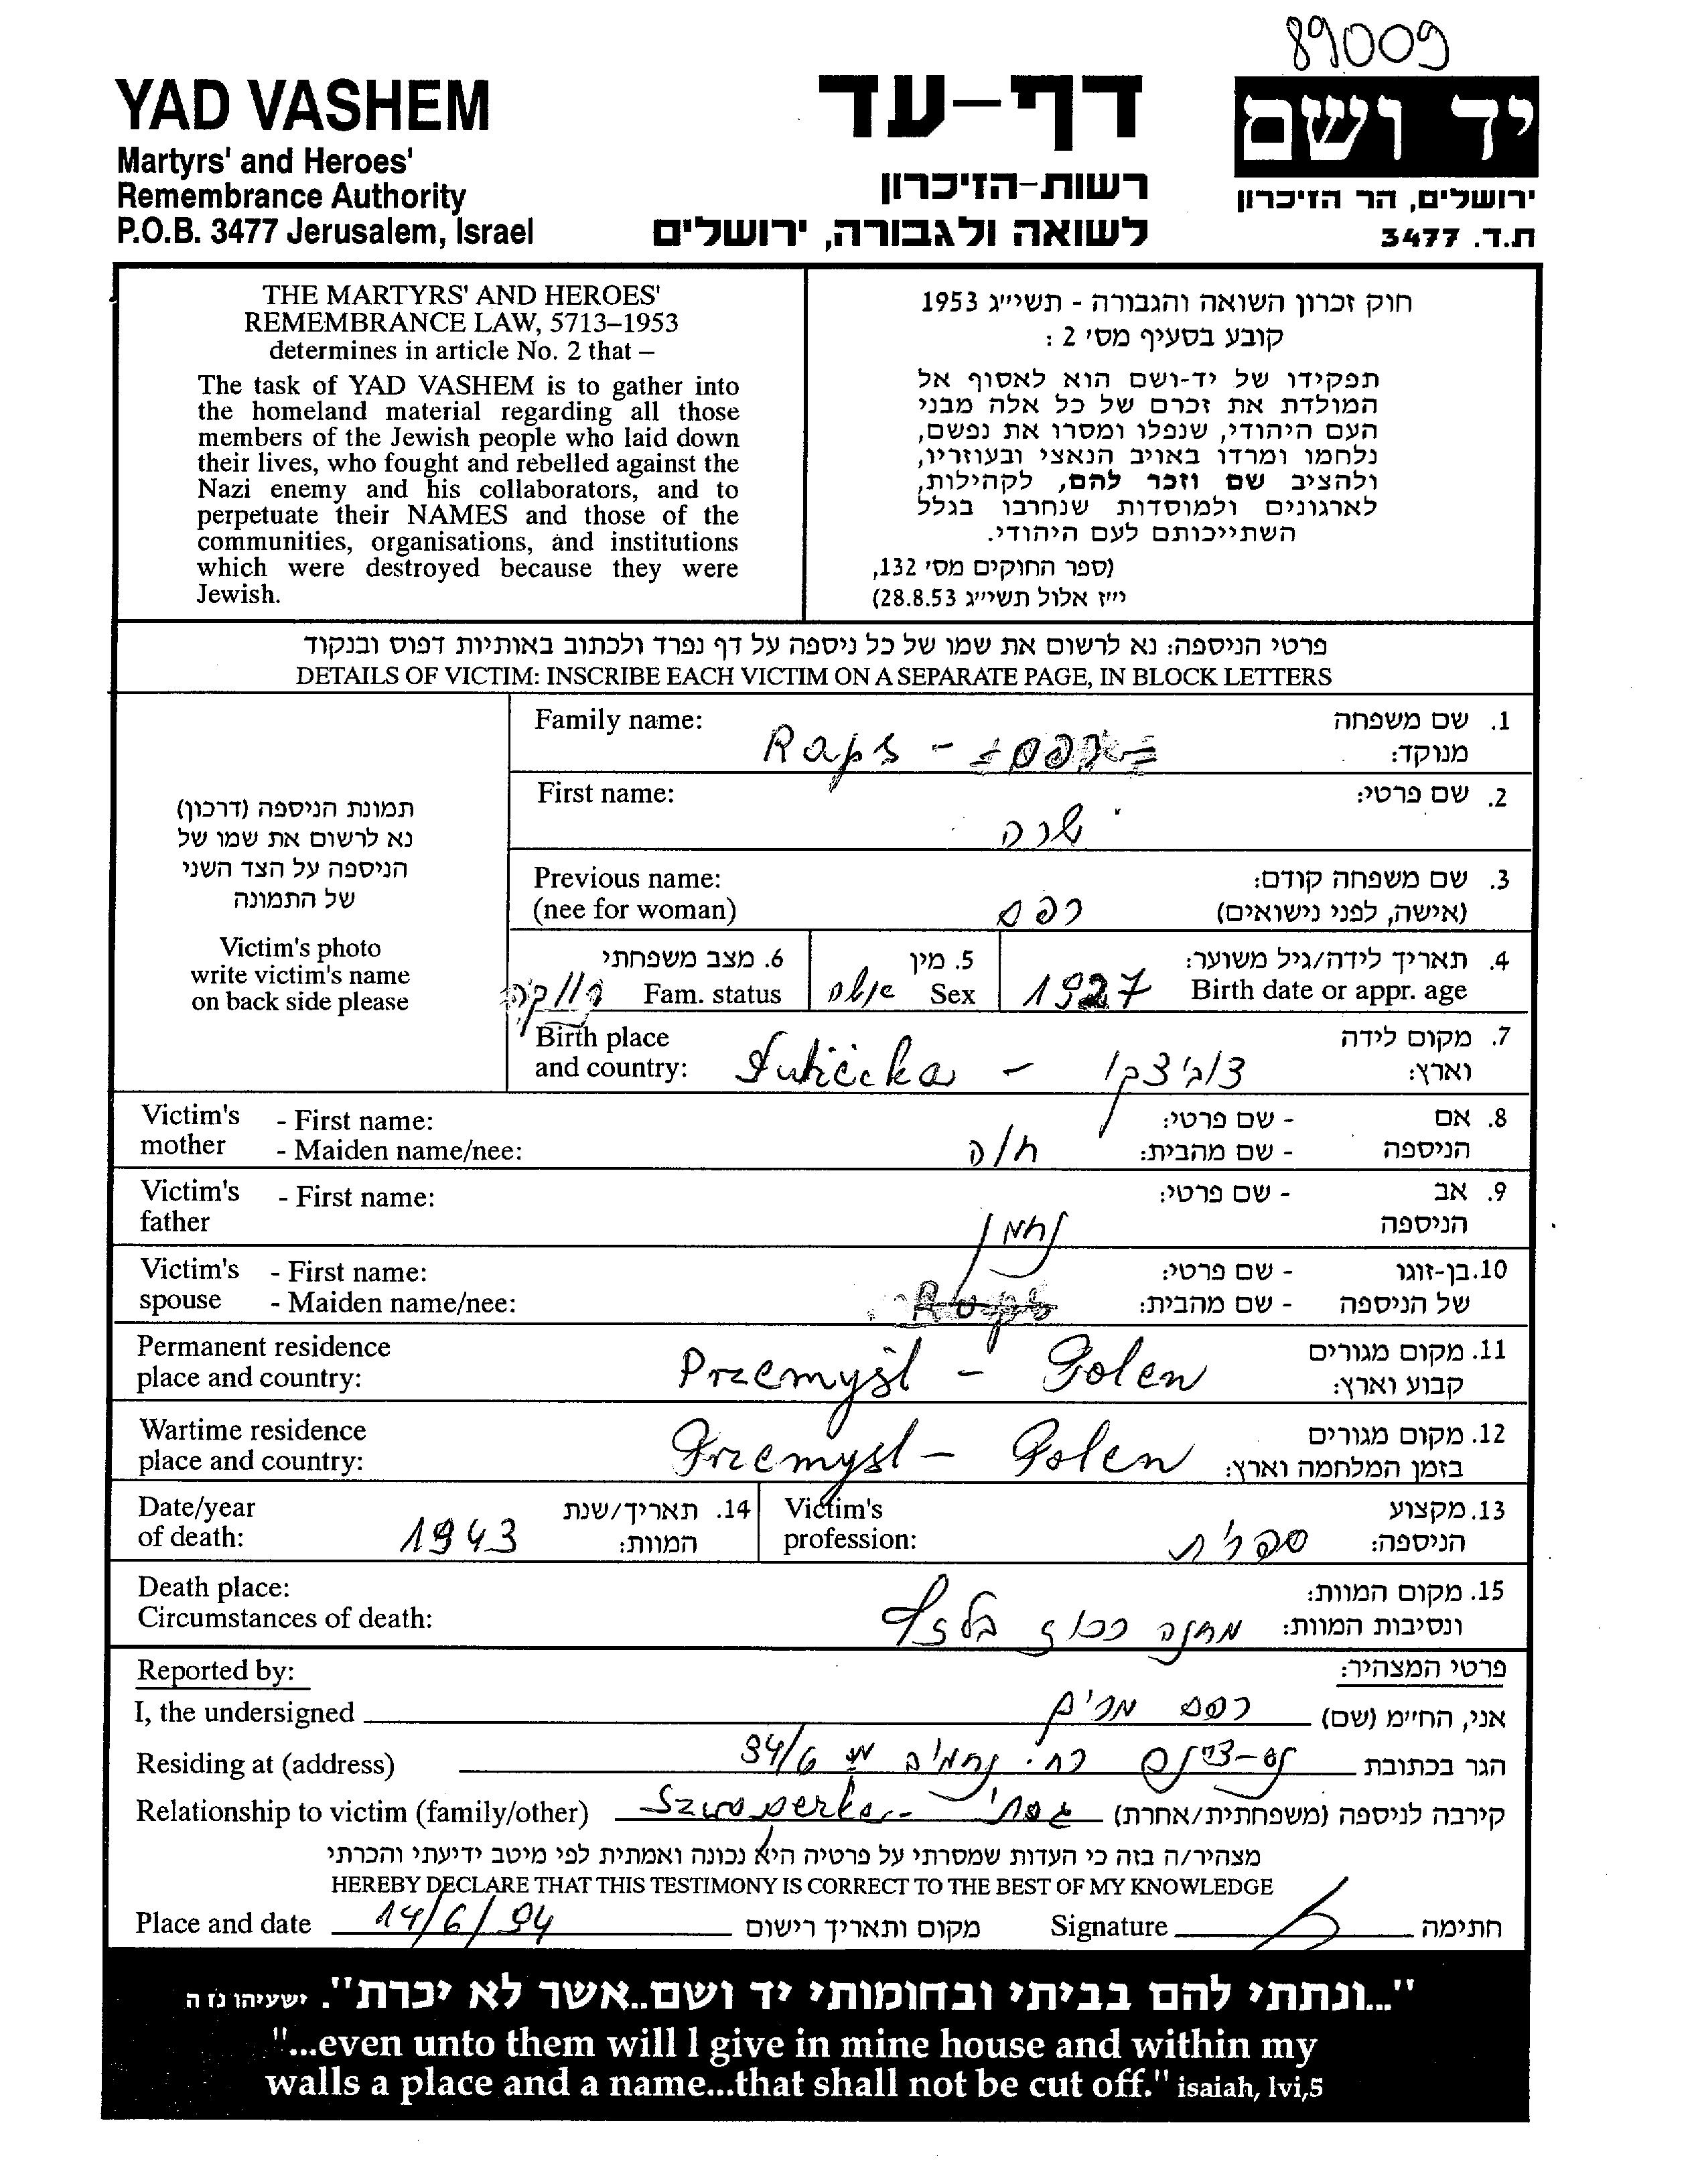 89009
YAD VASHEM
Martyrs' and Heroes'
Remembrance Authority
P.O.B. 3477 Jerusalem, Israel
דף-עד
רשות-הזיכרון
לשואה ולגבורה, ירושלים
יד ושם
ירושלים, הר הזיכרון
ת.ד. 3477
THE MARTYRS' AND HEROES'
REMEMBRANCE LAW, 5713–1953
determines in article No. 2 that –
The task of YAD VASHEM is to gather into
the homeland material regarding all those
members of the Jewish people who laid down
their lives, who fought and rebelled against the
Nazi enemy and his collaborators, and to
perpetuate their NAMES and those of the
communities, organisations, and institutions
which were destroyed because they were
Jewish.
חוק זכרון השואה והגבורה - תשי״ג 1953
קובע בסעיף מס׳ 2 :
תפקידו של יד-ושם הוא לאסוף אל
המולדת את זכרם של כל אלה מבני
העם היהודי, שנפלו ומסרו את נפשם,
נלחמו ומרדו באויב הנאצי ובעוזריו,
ולהציב שם וזכר להם, לקהילות,
לארגונים ולמוסדות שנחרבו בגלל
השתייכותם לעם היהודי.
(ספר החוקים מס׳ 132,
י״ז אלול תשי״ג 28.8.53)
פרטי הניספה: נא לרשום את שמו של כל ניספה על דף נפרד ולכתוב באותיות דפוס ובנקוד
DETAILS OF VICTIM: INSCRIBE EACH VICTIM ON A SEPARATE PAGE, IN BLOCK LETTERS
תמונת הניספה (דרכון)
נא לרשום את שמו של
הניספה על הצד השני
של התמונה
Victim's photo
write victim's name
on back side please
Family name: Raps - 1. שם משפחה
מנוקד:
First name: שרה 2. שם פרטי:
Previous name: 3. שם משפחה קודם:
(nee for woman) רפס (אישה, לפני נישואים)
6. מצב משפחתי 5. מין 4. תאריך לידה/גיל משוער:
רווקה Fam. status אשה Sex 1927 Birth date or appr. age
Birth place 7. מקום לידה
and country: - וארץ:
Victim's - First name: - שם פרטי: 8. אם
mother - Maiden name/nee: חוה - שם מהבית: הניספה
Victim's - First name: - שם פרטי: 9. אב
father נחמן הניספה
Victim's - First name: - שם פרטי: 10. בן-זוגו
spouse - Maiden name/nee: Raps - שם מהבית: של הניספה
Permanent residence 11. מקום מגורים
place and country: Przemyśl - Polen קבוע וארץ:
Wartime residence 12. מקום מגורים
place and country: Przemysl - Polen בזמן המלחמה וארץ:
Date/year 14. תאריך/שנת Victim's 13. מקצוע
of death: 1943 המוות: profession: ספרית הניספה:
Death place: 15. מקום המוות:
Circumstances of death: מחנה ריכוז בלזץ ונסיבות המוות:
Reported by: פרטי המצהיר:
I, the undersigned רפס מרים אני, החי״מ (שם)
Residing at (address) נס-ציונה רח. נחמיה 94/6 הגר בכתובת
Relationship to victim (family/other) Szwagerka - גיסתי קירבה לניספה (משפחתית/אחרת)
מצהיר/ה בזה כי העדות שמסרתי על פרטיה היא נכונה ואמתית לפי מיטב ידיעתי והכרתי
HEREBY DECLARE THAT THIS TESTIMONY IS CORRECT TO THE BEST OF MY KNOWLEDGE
Place and date 14/6/94 מקום ותאריך רישום Signature חתימה
"...ונתתי להם בביתי ובחומותי יד ושם..אשר לא יכרת". ישעיהו נו ה
"...even unto them will I give in mine house and within my
walls a place and a name...that shall not be cut off." isaiah, lvi,5